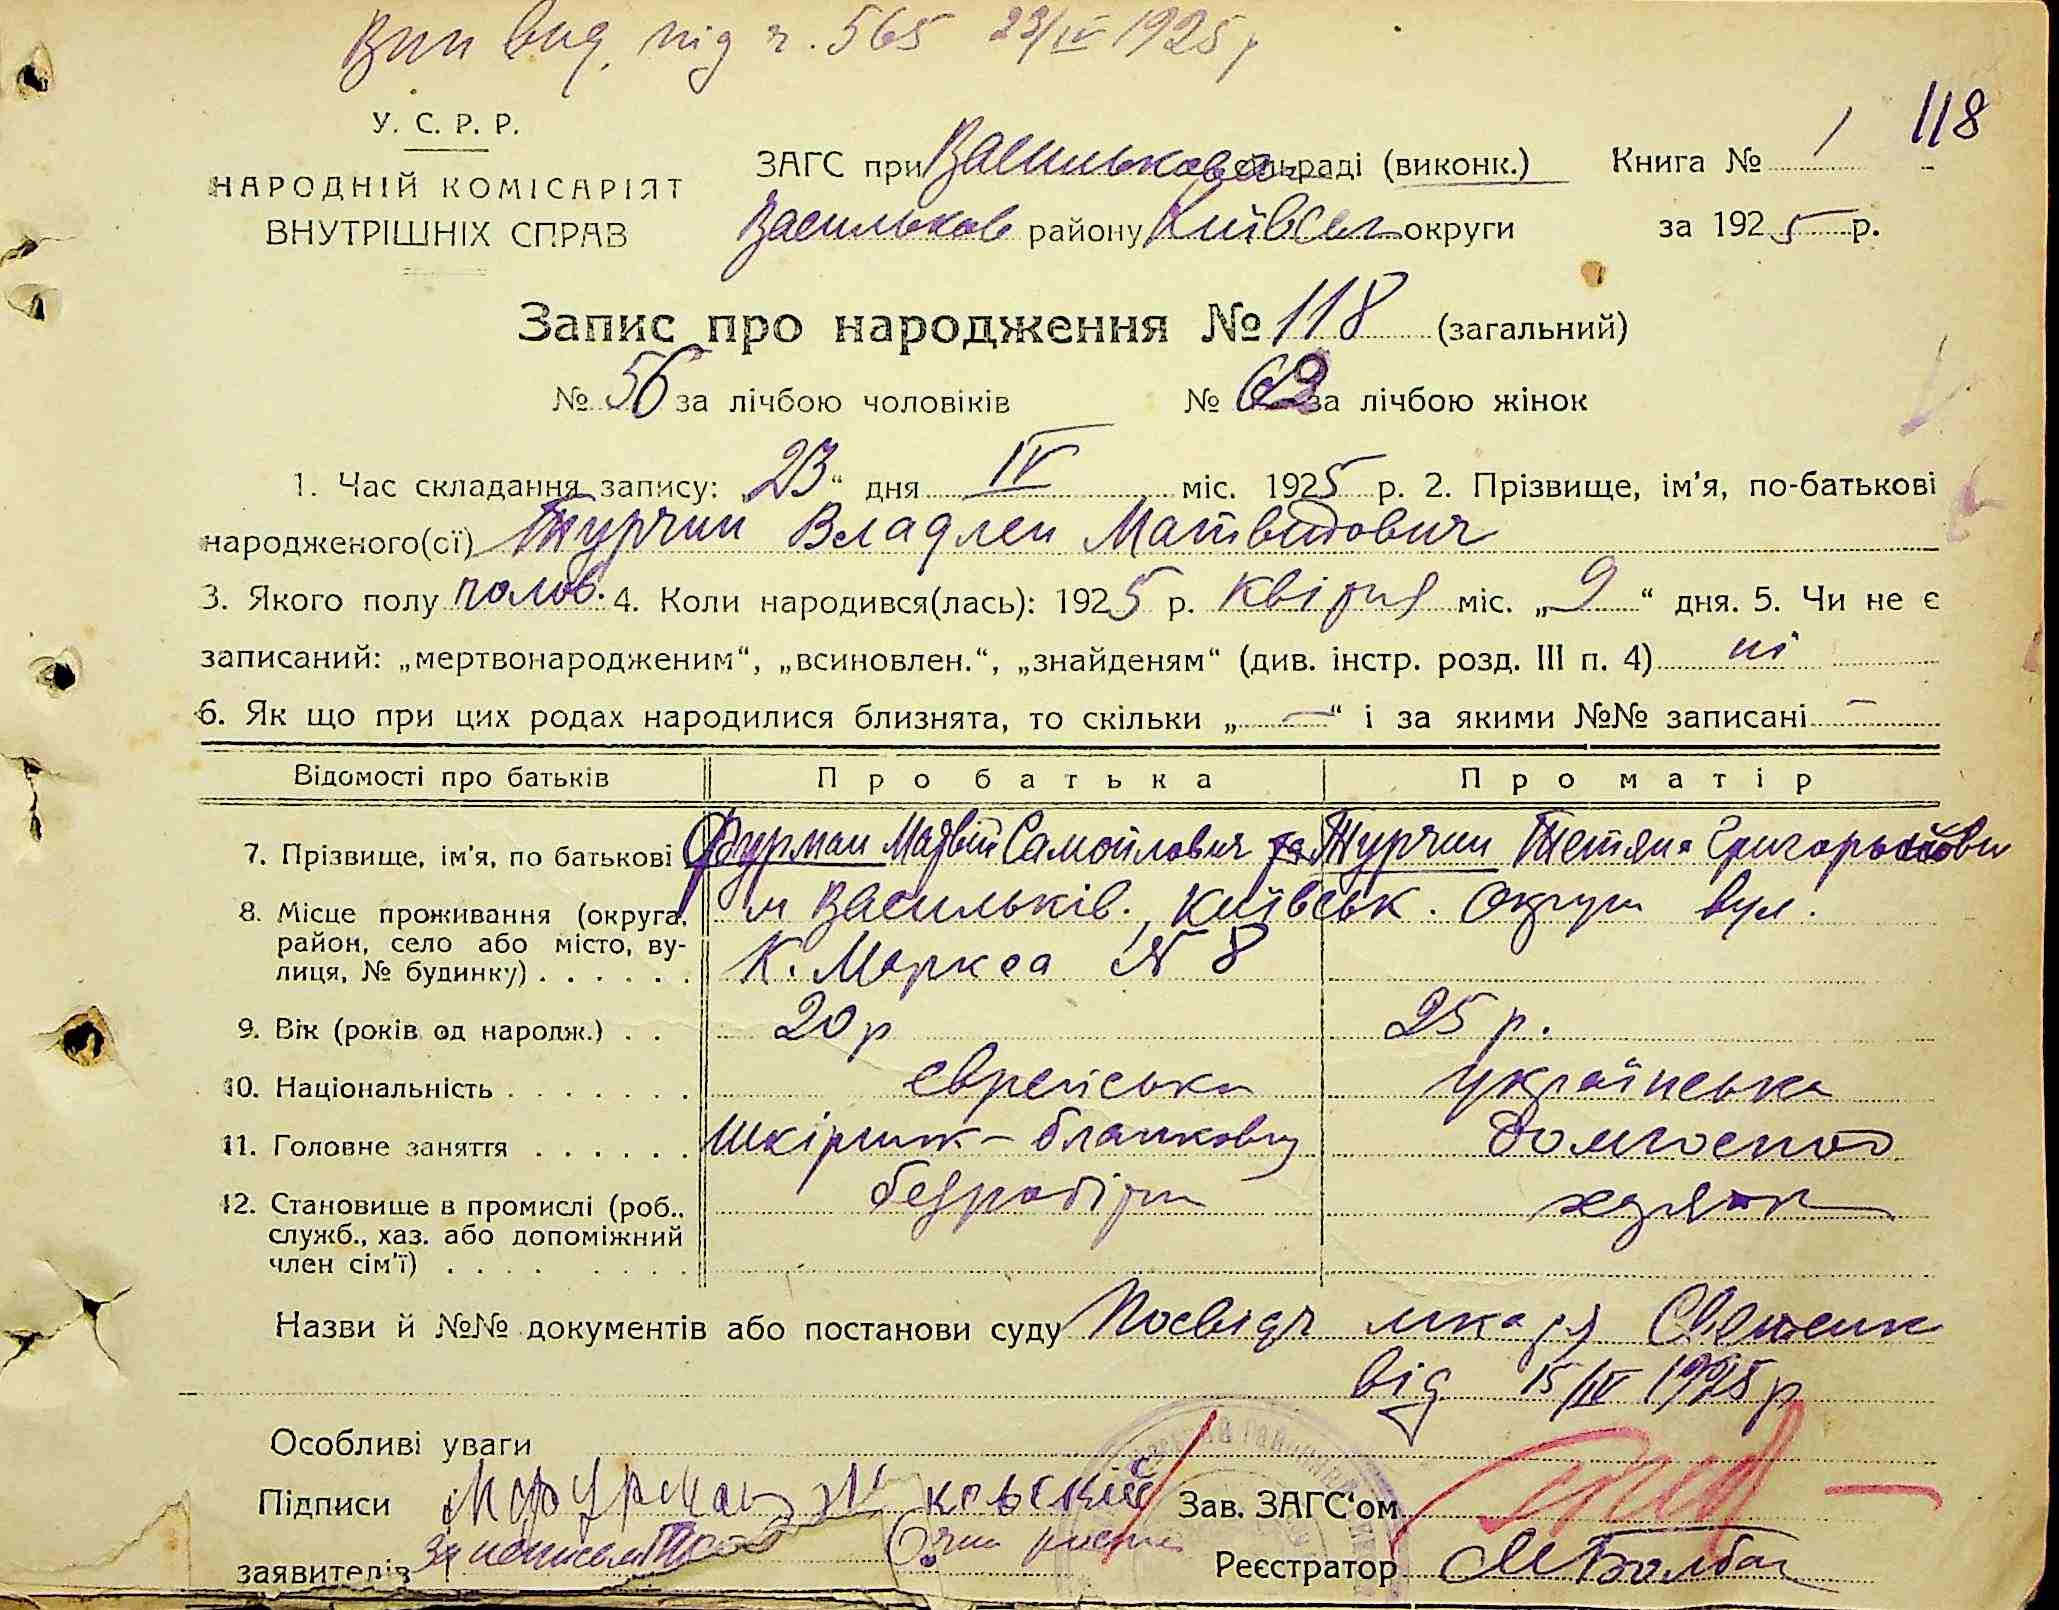 Вип вид. під ч. 565 23/IV 1925 р
118
У. С. Р. Р.
НАРОДНІЙ КОМІСАРІЯТ
ВНУТРІШНІХ СПРАВ
ЗАГС при Васильков сельраді (виконк.) Книга № 1
Васильков району Київськ округи за 1925 р.
Запис про народження № 118 (загальний)
№ 56 за лічбою чоловіків № 62 за лічбою жінок
1. Час складання запису: „23“ дня IV міс. 1925 р. 2. Прізвище, ім'я, по-батькові
народженого(ої) Турчин Владлен Матвидович
3. Якого полу чолов. 4. Коли народився(лась): 1925 р. квітня міс. „9“ дня. 5. Чи не є
записаний: „мертвонародженим“, „всиновлен.“, „знайденям“ (див. інстр. розд. III п. 4) ні
6. Як що при цих родах народилися близнята, то скільки „—“ і за якими №№ записані —
Відомості про батьків Про батька Про матір
7. Прізвище, ім'я, по батькові Фурман Матвій Самойлович та Турчин Тетяна
8. Місце проживання (округа, м Васильків., Київськ. округи вул.
район, село або місто, ву-
лиця, № будинку) . . . . . . К. Маркса № 8
9. Вік (років од народж.) . . 20 р 25 р.
10. Національність . . . . . . . єврейська українська
11. Головне заняття . . . . . . домгоспод
12. Становище в промислі (роб., безробітн хазяйк
служб., хаз. або допоміжний
член сім'ї) . . . . . . . .
Назви й №№ документів або постанови суду Посвідч лікаря
від 15/IV 1925 р
Особливі уваги
Підписи МФурман
заявителів
Зав. ЗАГС'ом
Реєстратор